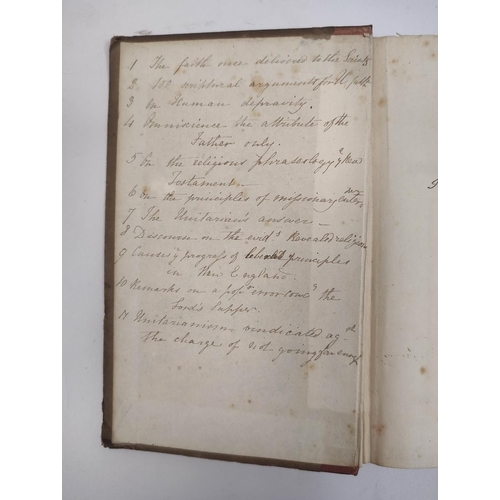 1 The faith once delivered to the Saints
2 100 scriptural arguments for the
3 On Human depravity.
4 Omniscience the attribute of the
Father only.
5 On the religious phraseology of New
Testament
6 On the principles of missionary
7 The Unitarian's answer
8 Discourse on the Revealed religion
9 Causes & progress of liberal principles
in New England.
10 Remarks on a the
Lord's Supper
11 Unitarianism vindicated ag.st
the charge of not going far enough